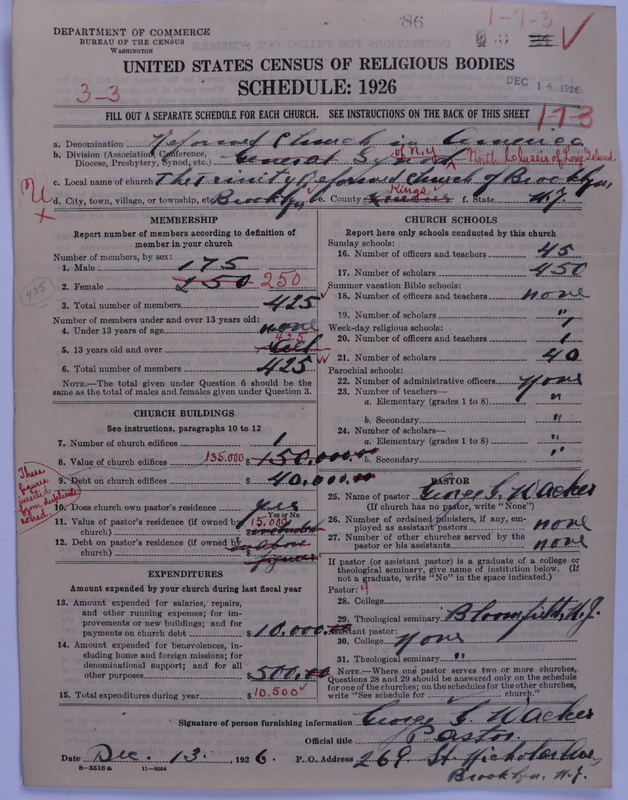 86
1-7-3
DEPARTMENT OF COMMERCE
BUREAU OF THE CENSUS
WASHINGTON
UNITED STATES CENSUS OF RELIGIOUS BODIES
DEC 14 1926
SCHEDULE: 1926
3-3
1-7-3
FILL OUT A SEPARATE SCHEDULE FOR EACH CHURCH. SEE INSTRUCTIONS ON THE BACK OF THIS SHEET
a. Denomination Reformed Church in America
b. Division (Association, Conference, Diocese, Presbytery, Synod, etc.) General Synod of N.Y. North Classis of Long Island
c. Local name of church The Trinity Reformed Church of Brooklyn,
d. City, town, village, or township, etc. Brooklyn e. County Queens Kings f. State N.Y.
MEMBERSHIP
Report number of members according to definition of member in your church
Number of members, by sex:
1. Male 175
2. Female 250 250
425
3. Total number of members 425
Number of members under and over 13 years old:
4. Under 13 years of age none
5. 13 years old and over all 425
6. Total number of members 425
NOTE.—The total given under Question 6 should be the same as the total of males and females given under Question 3.
CHURCH BUILDINGS
See instructions, paragraphs 10 to 12
7. Number of church edifices 1
8. Value of church edifices 135.000 $ 150,000.00
9. Debt on church edifices $ 40,000.00
These figures inserted from duplicate sched.
10. Does church own pastor's residence yes
Yes or No
11. Value of pastor's residence (if owned by church) 15.000 $ included
12. Debt on pastor's residence (if owned by church) $ in above figures
EXPENDITURES
Amount expended by your church during last fiscal year
13. Amount expended for salaries, repairs, and other running expenses; for improvements or new buildings; and for payments on church debt $ 10,000.00
14. Amount expended for benevolences, including home and foreign missions; for denominational support; and for all other purposes 500.00
15. Total expenditures during year $ 10,500
CHURCH SCHOOLS
Report here only schools conducted by this church
Sunday schools:
16. Number of officers and teachers 45
17. Number of scholars 450
Summer vacation Bible schools:
18. Number of officers and teachers none
19. Number of scholars "
Week-day religious schools:
20. Number of officers and teachers 1
21. Number of scholars 40
Parochial schools:
22. Number of administrative officers none
23. Number of teachers—
a. Elementary (grades 1 to 8) "
b. Secondary "
24. Number of scholars—
a. Elementary (grades 1 to 8) "
b. Secondary "
PASTOR
25. Name of pastor George G. Wacker
(If church has no pastor, write "None")
26. Number of ordained ministers, if any, employed as assistant pastors none
27. Number of other churches served by the pastor or his assistants none
If pastor (or assistant pastor) is a graduate of a college or theological seminary, give name of institution below. (If not a graduate, write "No" in the space indicated.)
Pastor:
28. College
29. Theological seminary Bloomfield, N.J.
Assistant pastor:
30. College none
31. Theological seminary "
NOTE.—Where one pastor serves two or more churches, Questions 28 and 29 should be answered only on the schedule for one of the churches; on the schedules for the other churches, write "See schedule for church."
Signature of person furnishing information George G. Wacker
Official title Pastor
Date Dec. 13. 1926. P. O. Address 269 St. Nicholas Ave,
Brooklyn, N.Y.
8—5518a 11—9034